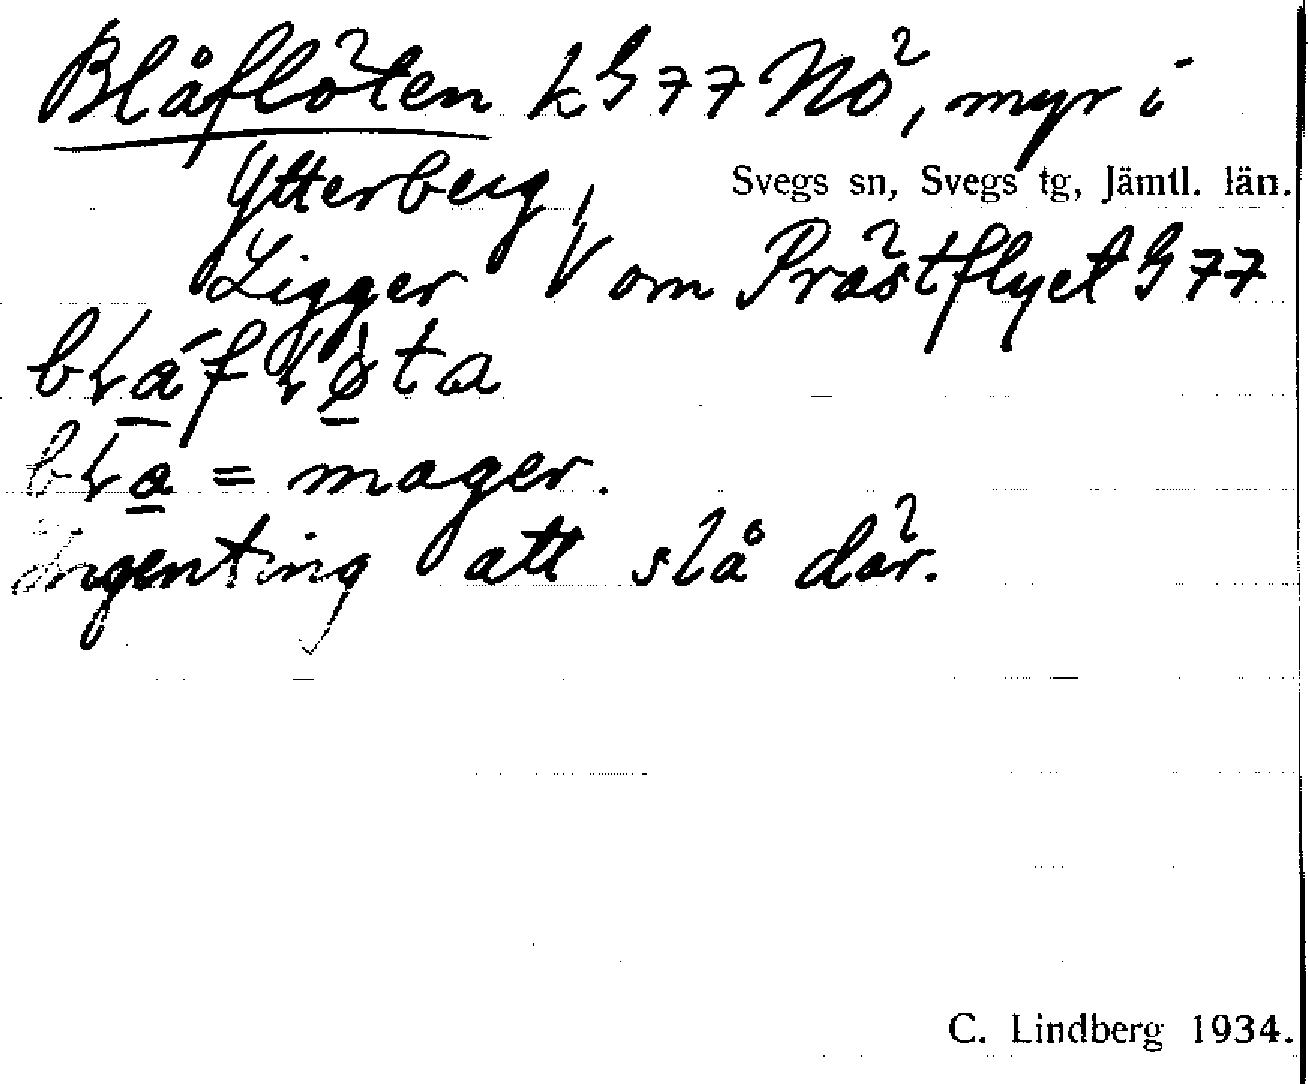 Blåflöten k G 77 NÖ, myr i
Ytterberg,
Svegs sn, Svegs tg, Jämtl. län.
Ligger V om Prästflyet G 77
= mager.
Ingenting att slå där.
C. Lindberg 1934.